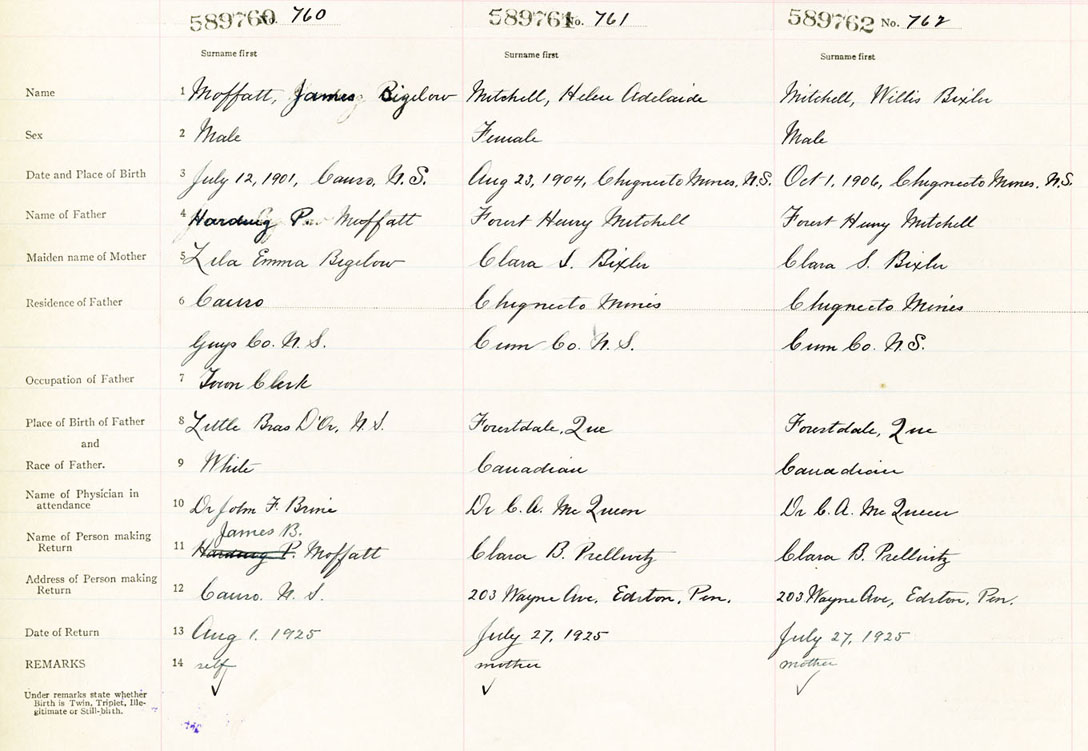 589760 No. 760 589761 No. 761 589762 No. 762
Surname first Surname first Surname first
Name 1 Moffatt, James Bigelow Mitchell, Helen Adelaide Mitchell, Willis Bixler
Sex 2 Male Female Male
Date and Place of Birth 3 July 12, 1901, Canso, N.S. Aug 23, 1904, Chignecto Mines, N.S. Oct 1, 1906, Chignecto Mines, N.S.
Name of Father 4 Harding P. Moffatt Forest Henry Mitchell Forest Henry Mitchell
Maiden name of Mother 5 Lila Emma Bigelow Clara S. Bixler Clara S. Bixler
Residence of Father 6 Canso Chignecto Mines Chignecto Mines
Guys Co. N.S. Cum Co. N.S. Cum Co. N.S.
Occupation of Father 7 Town Clerk
Place of Birth of Father 8 Little Bras D'Or, N.S. Forestdale, Que Forestdale, Que
and
Race of Father. 9 White Canadian Canadian
Name of Physician in
attendance 10 Dr John F. Brine Dr C.A. McQueen Dr C.A. McQueen
James B.
Name of Person making
Return 11 Harding P. Moffatt Clara B. Prellwitz Clara B. Prellwitz
Address of Person making
Return 12 Canso. N.S. 203 Wayne Ave, Edston, Pen. 203 Wayne Ave, Edston, Pen.
Date of Return 13 Aug 1. 1925 July 27, 1925 July 27, 1925
REMARKS 14 self mother mother
Under remarks state whether
Birth is Twin, Triplet, Ille-
gitimate or Still-birth.